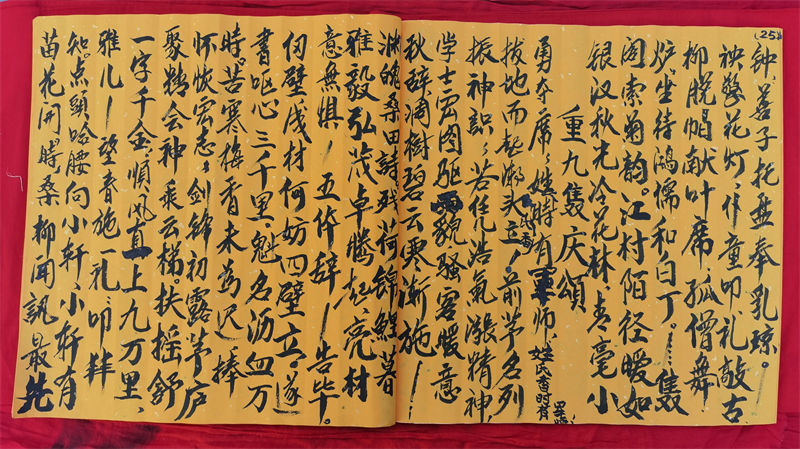 (25)
钟、善子托盘奉乳琼。
袂擎花灯、仆童叩礼敲古
柳脱帽献叶席、孤僧舞
炉。坐待鸿儒和白丁。隻
阁索菊韵。江村陌径暖如
银汉秋光冷花林、青毫小
重九隻庆頌
勇夺席、姓時有 師、姓氏香时有
拔地而起潮头立！前茅名列
振神韵、若任浩氣漲精神
学士 图驱 貌骚客暖意
秋辞凋樹碧云寒渐施
滌魄桑田詩残荷锦鯉暮
雅毅弘茂卓腾起、亮材
意無惧！五体辞！告毕。
仞壁成材何妨四壁立。遂
書呕心三千里。魁名沥血万
時。苦寒梅香未為迟、捧
怀恢宏志。劍鋒初露茅庐
聚精会神乘云梯。扶摇舒
一字千金。順风直上九万里、
雅儿！望春施一礼、叩拜
知。点頭哈腰向小轩、小轩有
苗花開。時桑柳聞訊最先